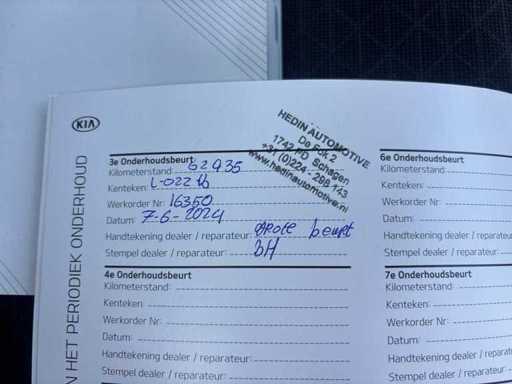 KIA
N HET PERIODIEK ONDERHOUD
HEDIN AUTOMOTIVE
De Fok 2
1742 PD Schagen
+31 (0)224 - 298 143
www.hedinautomotive.nl
3e Onderhoudsbeurt
Kilometerstand: 62935
Kenteken: L-022
Werkorder Nr: 16350
Datum: 7-6-2024
Handtekening dealer / reparateur: grote beurt
Stempel dealer / reparateur: BH
4e Onderhoudsbeurt
Kilometerstand:
Kenteken:
Werkorder Nr:
Datum:
Handtekening dealer / reparateur:
Stempel dealer / reparateur:
6e Onderhoudsbeurt
Kilometerstand:
Kenteken:
Werkorder Nr:
Datum:
Handtekening dealer / re
Stempel dealer / repara
7e Onderhoudsbeurt
Kilometerstand:
Kenteken:
Werkorder Nr:
Datum:
Handtekening dealer
Stempel dealer / rep